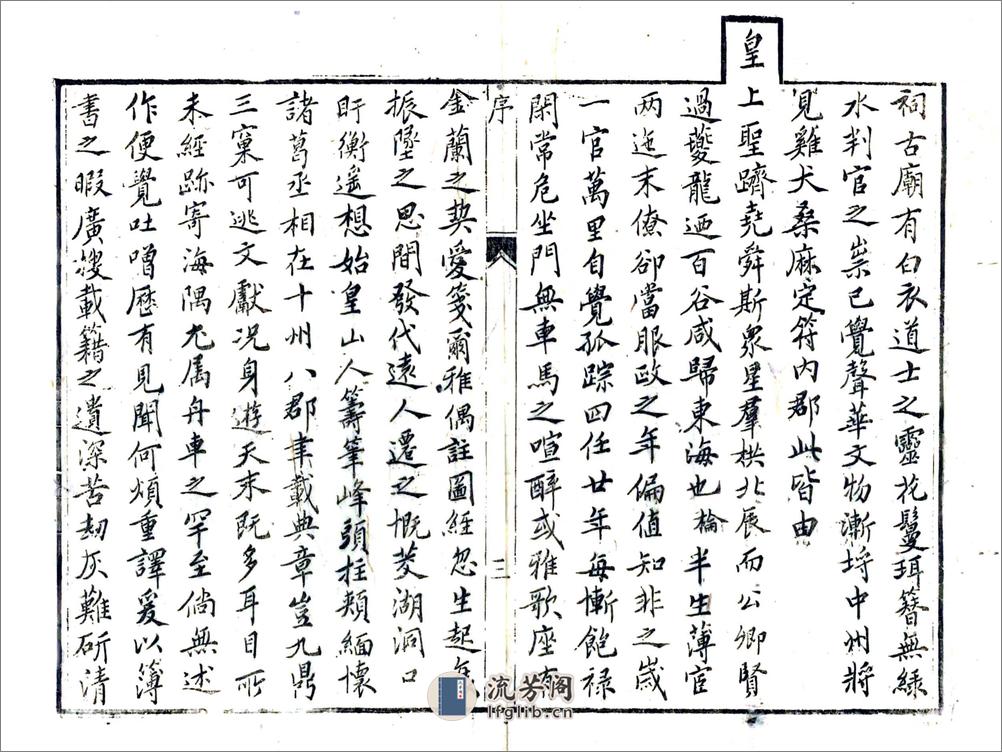 祠古廟有白衣道士之靈花鬘珥簪無綠
水判官之祟已覺聲華文物漸埒中州將
見雞犬桑麻定符內郡此皆由
皇上聖躋堯舜斯眾星羣拱北辰而公卿賢
過夔龍迺百谷咸歸東海也棆半生薄宦
两迤末僚卻當服政之年偏值知非之歲
一官萬里自覺孤踪四任廿年每慚飽祿
閑常危坐門無車馬之喧醉或雅歌座有
序
三
金蘭之契愛箋爾雅偶註圖經忽生起
振墜之思間發代遠人遷之慨菱湖洞口
盱衡遥想始皇山人籌筆峰頭拄頰緬懷
諸葛丞相在十州八郡聿載典章豈九鼎
三窠可逃文獻况身遊天末既多耳目所
未經跡寄海隅尤属舟車之罕至倘無述
作便覺吐噌歷有見聞何煩重譯爰以簿
書之暇廣搜載籍之遺深苦刼灰難硏清
流芳阁
lfglib.cn